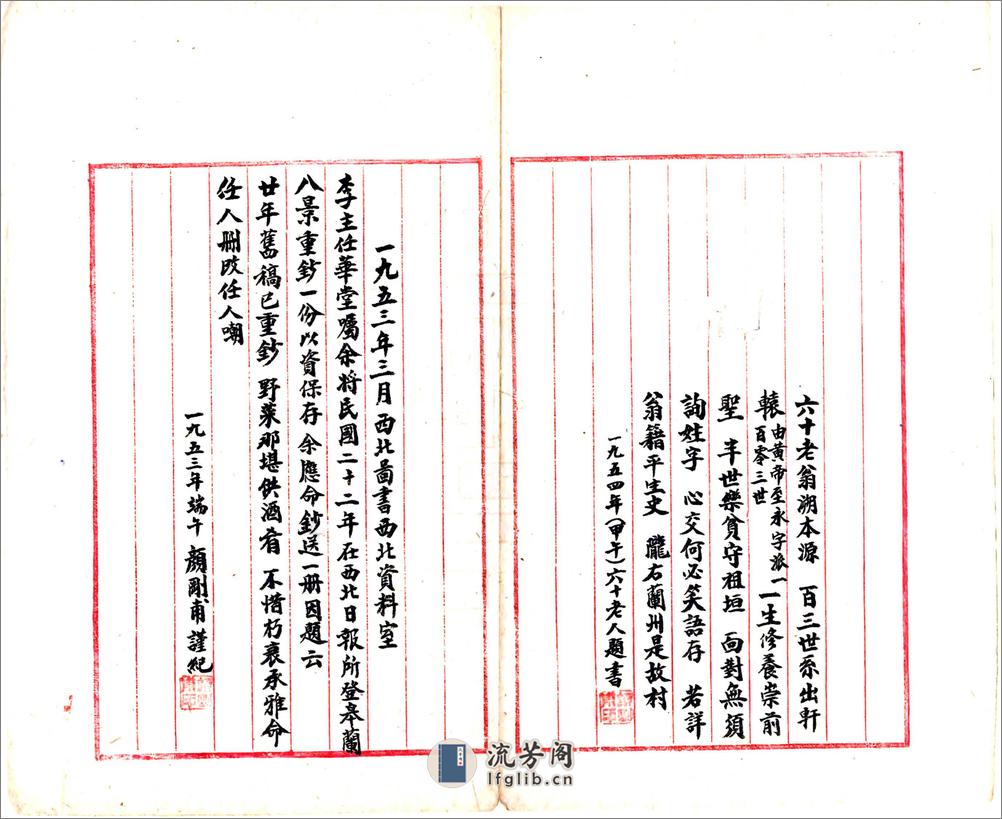 六十老翁溯本源　百三世系出軒
轅由黃帝至永字派一百零三世　一生修養崇前
聖　半世樂貧守祖垣　面對無須
詢姓字　心交何必笑語存　若詳
翁籍平生史　隴右蘭州是故村
一九五四年(甲午)六十老人題書
一九五三年三月西北圖書西北資料室
李主任華堂囑余將民國二十二年在西北日報所登皋蘭
八景重鈔一份以資保存余應命鈔送一册因題云
廿年舊稿已重鈔　野菜那堪供酒肴　不惜朽衰承雅命
任人刪改任人嘲
一九五三年端午　顏剛甫謹紀
流芳阁
lfglib.cn